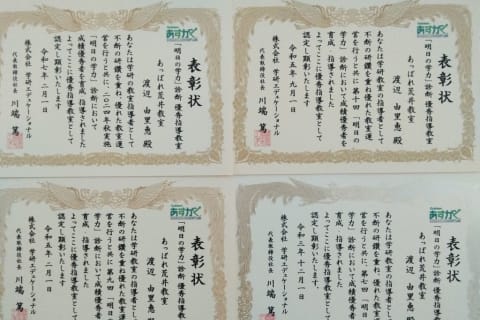 表彰状
「明日の学力」診断 優秀指導教室
あっぱれ荒井教室
渡辺 由里恵 殿
あなたは学研教室の指導者として
不断の研鑽を重ね優れた教室運
営を行うと共に、二〇二四年秋実施
「明日の学力」診断において
成績優秀者を育成、指導されました
よってここに優良指導教室として
認定し顕彰いたします
令和七年二月一日
株式会社 学研エデュケーショナル
代表取締役社長 川端 篤
あすがく
表彰状
「明日の学力」診断 優秀指導教室
あっぱれ荒井教室
渡辺 由里恵 殿
あなたは学研教室の指導者として
不断の研鑽を重ね優れた教室運
営を行うと共に、第十回「明日の
学力」診断において成績優秀者を
育成、指導されました
よってここに優良指導教室として
認定し顕彰いたします
令和五年九月一日
株式会社 学研エデュケーショナル
代表取締役社長 川端 篤
あすがく
表彰状
「明日の学力」診断 優秀指導教室
あっぱれ荒井教室
渡辺 由里恵 殿
あなたは学研教室の指導者として
不断の研鑽を重ね優れた教室運
営を行うと共に、第九回「明日の
学力」診断において成績優秀者を
育成、指導されました
よってここに優良指導教室として
認定し顕彰いたします
令和五年二月一日
株式会社 学研エデュケーショナル
代表取締役社長 川端 篤
あすがく
表彰状
「明日の学力」診断 優秀指導教室
あっぱれ荒井教室
渡辺 由里恵 殿
あなたは学研教室の指導者として
不断の研鑽を重ね優れた教室運
営を行うと共に、第七回「明日の
学力」診断において成績優秀者を
育成、指導されました
よってここに優良指導教室として
認定し顕彰いたします
令和三年十二月一日
株式会社 学研エデュケーショナル
代表取締役社長 川端 篤